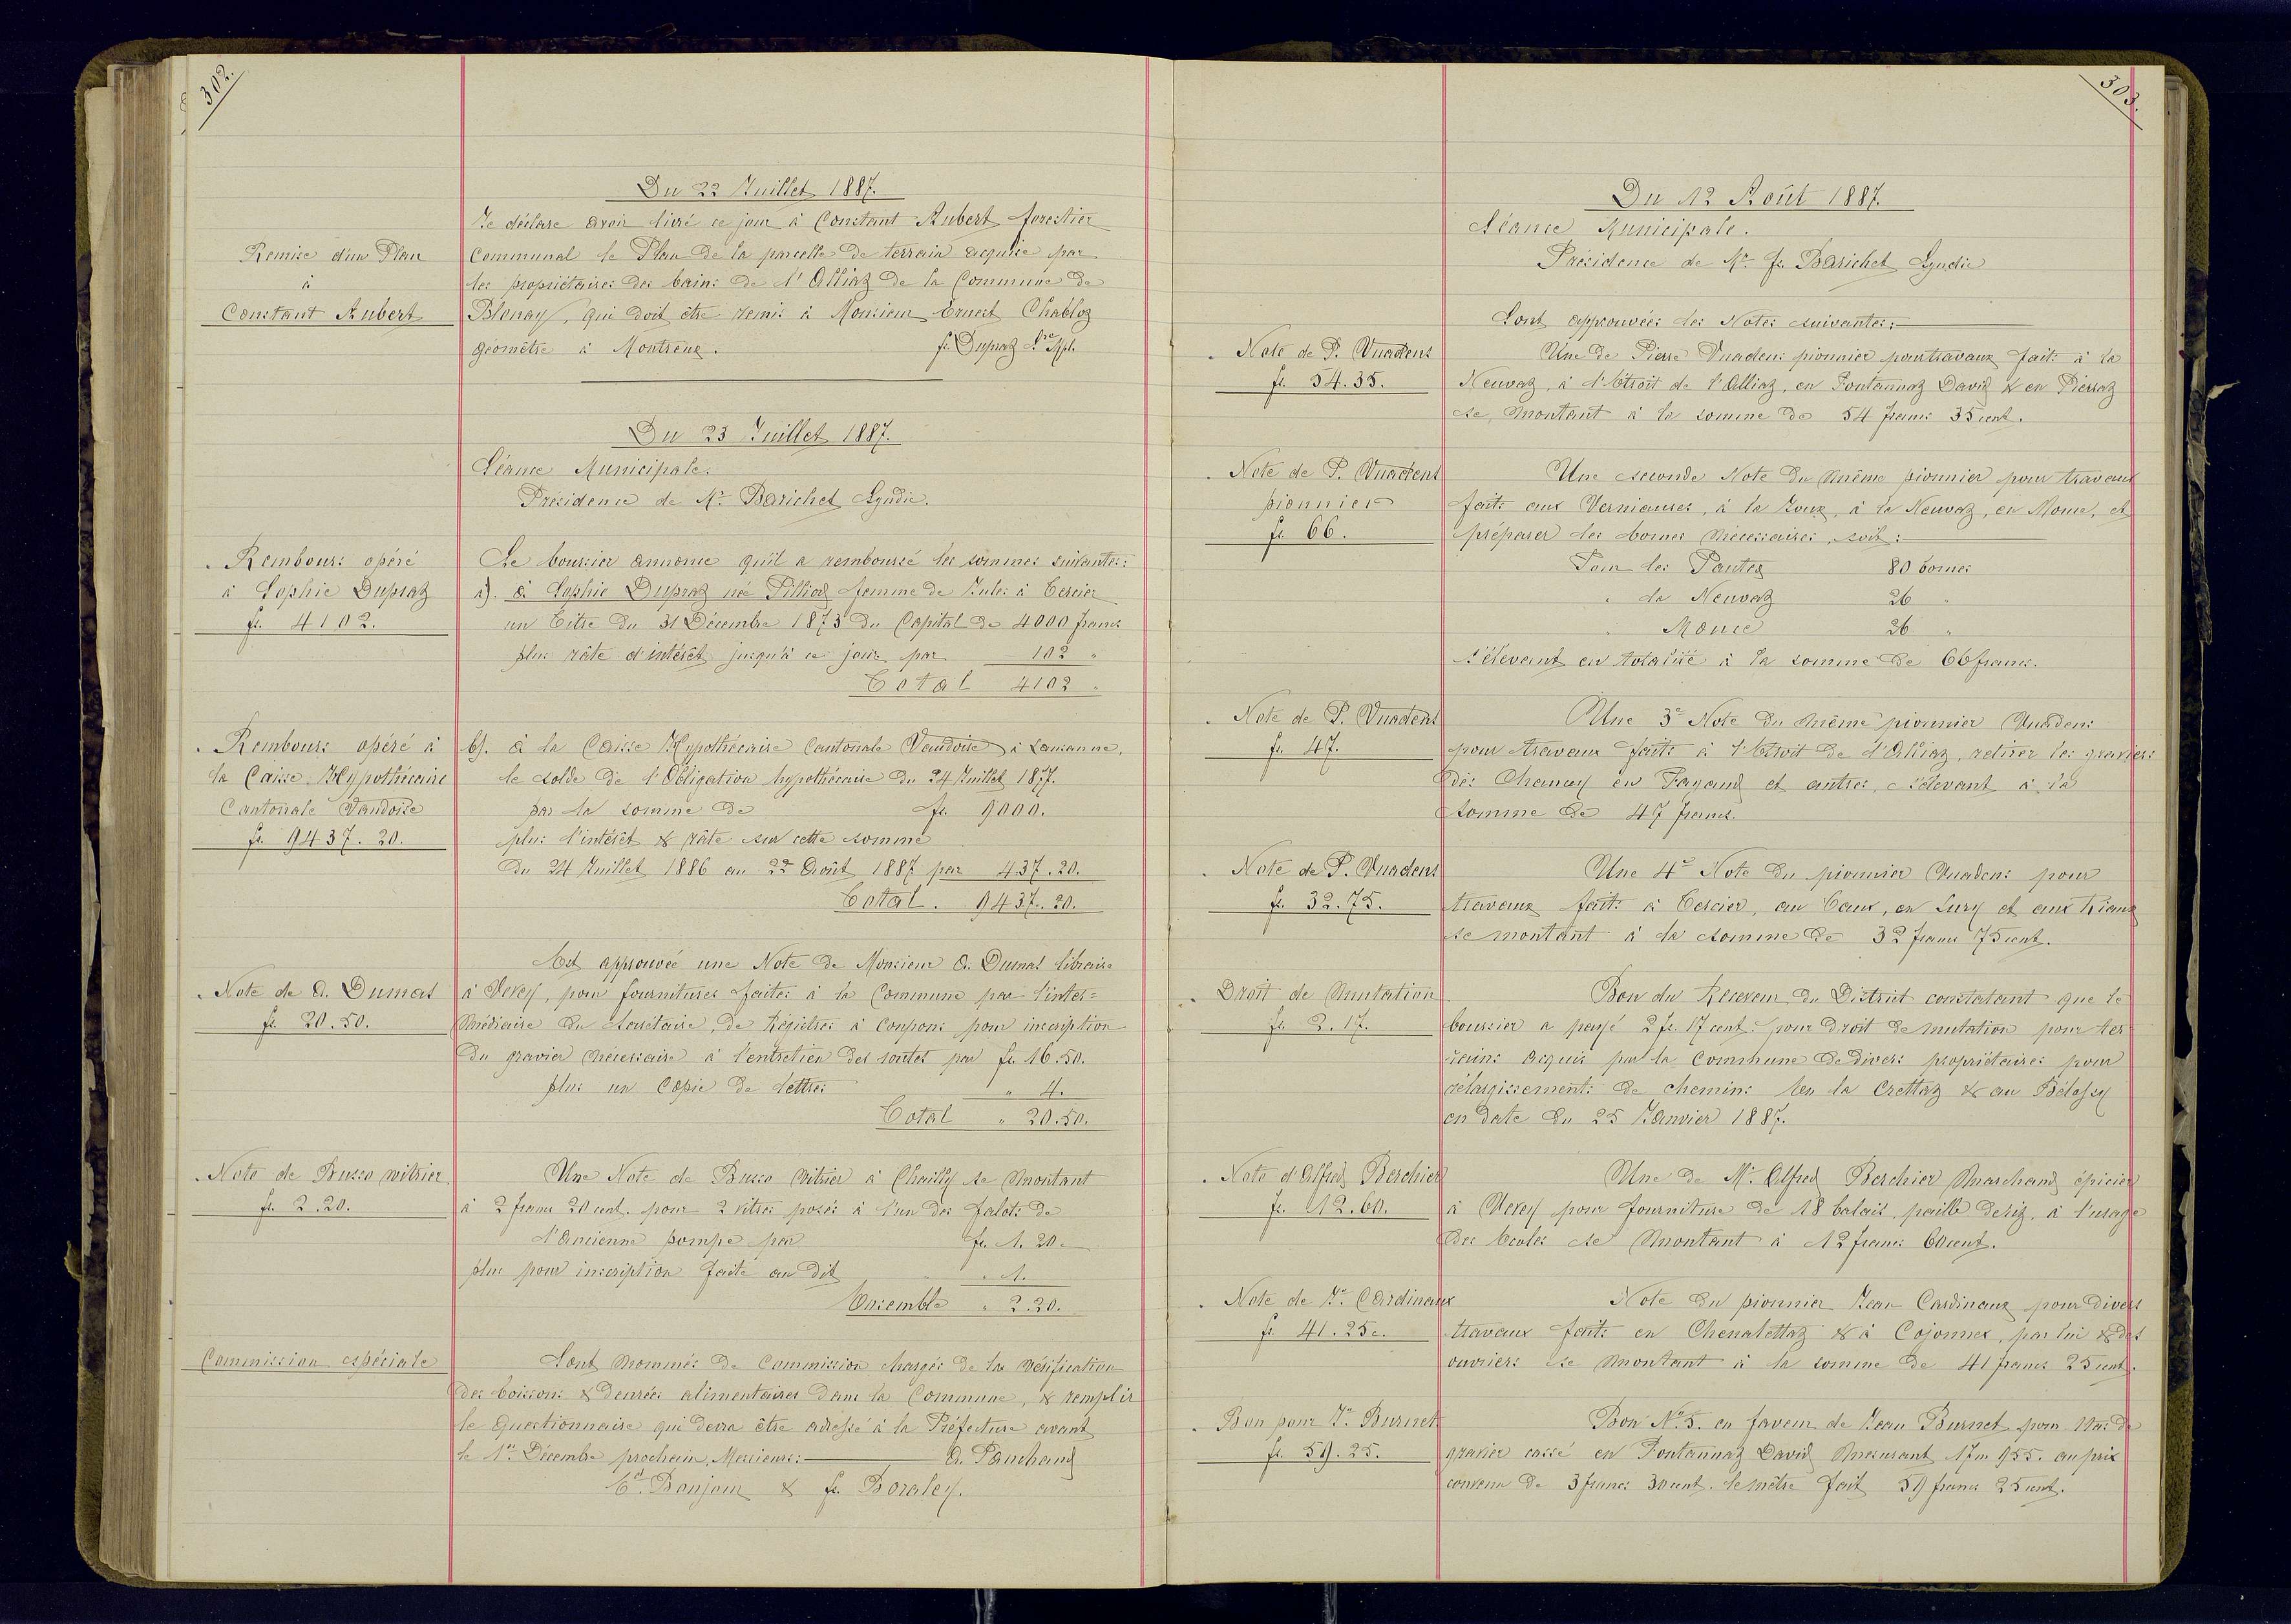 302.
Du 22 Juillet 1887.
Remise d'un Plan
à
Constant Aubert
Je déclare avoir livré ce jour à Constant Aubert forestier
communal le Plan de la parcelle de terrain acquise par
les propriétaires des bains de l'Alliaz de la Commune de
Blonay, qui doit être remis à Monsieur Ernest Chabloz
géomètre à Montreux. fs. Dupraz S.re Mpl.
Du 23 Juillet 1887.
Séance Municipale.
Présidence de Mr. Barichet Syndic.
Rembours opéré
à Sophie Dupraz
fr. 4102.
Le boursier annonce qu'il a remboursé les sommes suivantes:
a). à Sophie Dupraz née Pilliod femme de Jules à Tercier
un titre du 31 Décembre 1873 du Capital de 4000 francs
plus râte d'intérêt jusqu'à ce jour par 102 "
Total 4102 "
Rembours opéré à
la Caisse Hypothécaire
Cantonale Vaudoise
fr. 9437.20.
b). à la Caisse Hypothécaire Cantonale Vaudoise à Lausanne,
le solde de l'Obligation hypothécaire du 24 Juillet 1877.
par la somme de fr. 9000.
plus l'intérêt & râte sur cette somme
du 24 Juillet 1886 au 22 Août 1887 par 437.20.
Total. 9437.20.
Note de A. Dumas
fr. 20.50.
Est approuvée une Note de Monsieur A. Dumas libraire
à Vevey, pour fournitures faites à la Commune par l'inter=
médiaire du Secrétaire, de Régistres à coupons pour inscription
du gravier nécessaire à l'entretien des routes par fr. 16.50.
plus un Copie de lettres " 4.
Total " 20.50.
Note de Busso vitrier
fr. 2.20.
Une Note de Busso vitrier à Chailly se montant
à 2 francs 20 cent. pour 2 vitres posés à l'un des falots de
l'Ancienne pompe par fr. 1.20.
plus pour inscription faite au dit " 1.
Ensemble " 2.20.
Commission espéciale
Sont nommés de Commission chargés de la vérification
des boissons & denrées alimentaires dans la Commune, & remplir
le Questionnaire qui devra être adressé à la Préfecture avant
le 1er. Décembre prochain, Messieurs: A. Panchaud
Ed. Bonjour & fs. Boraley.
303.
Du 12 Août 1887.
Séance Municipale.
Présidence de Mr. fs. Barichet Syndic
Sont approuvées les Notes suivantes:
Note de P. Vuadens
fr. 54.35.
Une de Pierre Vuadens pionnier pour travaux faits à la
Neuvaz, à l'Etroit de l'Alliaz, en Fontannaz David & en Pierraz
se montant à la somme de 54 francs 35 cent.
Note de P. Vuadens
pionnier
fr. 66.
Une seconde Note du même pionnier pour travaux
faits aux Verniauses, à la Joux, à la Neuvaz, en Moue, et
préparer les bornes nécessaires, soit:
Pour les Pautex 80 bornes
" la Neuvaz 26 "
" Moue 26 "
s'élevant en totalité à la somme de 66 francs.
Note de P. Vuadens
fr. 47.
Une 3e Note du même pionnier Vuadens
pour travaux faits à l'Etroit de l'Alliaz, retirer les graviers
dès Chamay en Fayaud et autres, s'élevant à la
somme de 47 francs.
Note de P. Vuadens
fr. 32.75.
Une 4e Note du pionnier Vuadens pour
travaux faits à Tercier, au Caux, en Sury et aux Riaux
se montant à la somme de 32 francs 75 cent.
Droit de Mutation
fr. 2.17.
Bon du Receveur du District constatant que le
boursier a payé 2 fr. 17 cent. pour droit de mutation pour ter
rains acquis par la Commune de divers propriétaires pour
rélargissements de chemins En la Crettaz & au Bétasey
en date du 25 Janvier 1887.
Note d'Alfred Berchier
fr. 12.60.
Une de Mr. Alfred Berchier Marchand épicier
à Vevey pour fourniture de 18 balais, paille de riz, à l'usage
des Ecoles se montant à 12 francs 60 cent.
Note de Jn. Cardinaux
fr. 41.25c.
Note du pionnier Jean Cardinaux pour divers
travaux faits en Chenalettaz & à Cojonnex, par lui & des
ouvriers se montant à la somme de 41 francs 25 cent.
Bon pour Jn. Burnet
fr. 59.25.
Bon No. 5. en faveur de Jean Burnet pour Mas de
gravier cassé en Fontannaz David mesurant 17m 955. au prix
convenu de 3 francs 30 cent. le mètre fait 59 francs 25 cent.